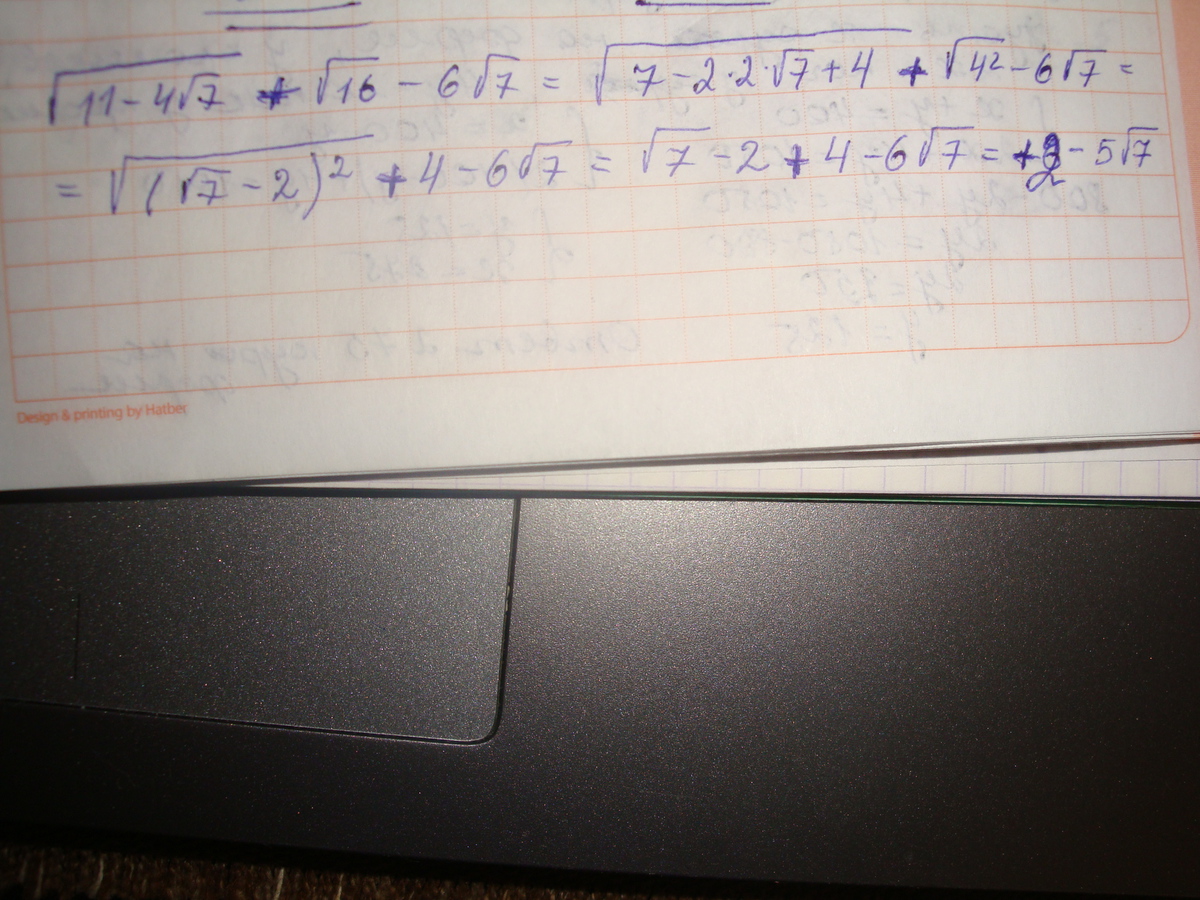 √11-4√7 + √16 - 6√7 = √7-2·2·√7+4 + √4² - 6√7 =
= √(√7-2)² + 4 - 6√7 = √7 - 2 + 4 - 6√7 = +2 - 5√7
Design & printing by Hatber